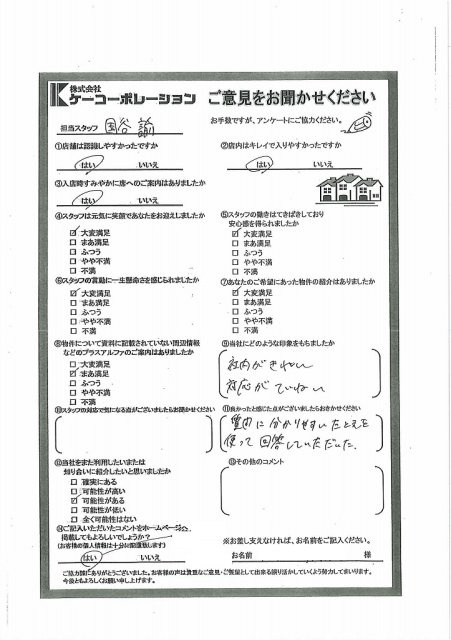 株式会社
ケーコーポレーション ご意見をお聞かせください
担当スタッフ 国谷 諭
お手数ですが、アンケートにご協力ください。
①店舗は認識しやすかったですか
はい いいえ
②店内はキレイで入りやすかったですか
はい いいえ
③入店時すみやかに席へのご案内はありましたか
はい いいえ
④スタッフは元気に笑顔であなたをお迎えしましたか
☑ 大変満足
□ まあ満足
□ ふつう
□ やや不満
□ 不満
⑤スタッフの動きはてきぱきしており
安心感を得られましたか
☑ 大変満足
□ まあ満足
□ ふつう
□ やや不満
□ 不満
⑥スタッフの言動に一生懸命さを感じられましたか
☑ 大変満足
□ まあ満足
□ ふつう
□ やや不満
□ 不満
⑦あなたのご希望にあった物件の紹介はありましたか
☑ 大変満足
□ まあ満足
□ ふつう
□ やや不満
□ 不満
⑧物件について資料に記載されていない周辺情報
などのプラスアルファのご案内はありましたか
□ 大変満足
☑ まあ満足
□ ふつう
□ やや不満
□ 不満
⑨当社にどのような印象をもちましたか
社内がきれい
対応がていねい
⑩スタッフの対応で気になる点がございましたらお聞かせください
⑪良かったと感じた点がございましたらお きかせください
質問に分かりやすいたとえを
使って回答していただいた。
⑫当社をまた利用したいまたは
知り合いに紹介したいと思いましたか
□ 確実にある
□ 可能性が高い
☑ 可能性がある
□ 可能性が低い
□ 全く可能性はない
⑬その他のコメント
⑭ご記入いただいたコメントをホームページに
掲載してもよろしいでしょうか?
(お客様の個人情報は十分に配慮致します)
はい いいえ
※お差し支えなければ、お名前をご記入ください。
お名前 様
ご協力誠にありがとうございました。お客様の声は貴重なご意見・ご要望として出来る限り活かしていくよう努力してまいります。
今後ともよろしくお願い申し上げます。